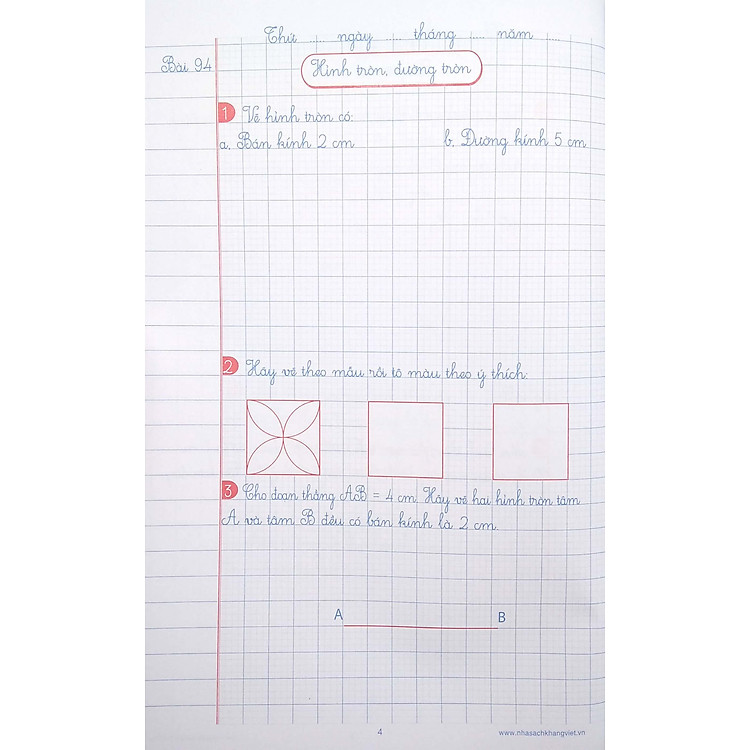 Thứ ..... ngày ..... tháng ..... năm .....
Bài 94
Hình tròn, đường tròn
1 Vẽ hình tròn có:
a, Bán kính 2 cm
b. Đường kính 5 cm
2 Hãy vẽ theo mẫu rồi tô màu theo ý thích:
3 Cho đoạn thẳng AB = 4 cm. Hãy vẽ hai hình tròn tâm
A và tâm B đều có bán kính là 2 cm.
A B
4 www.nhasachkhangviet.vn